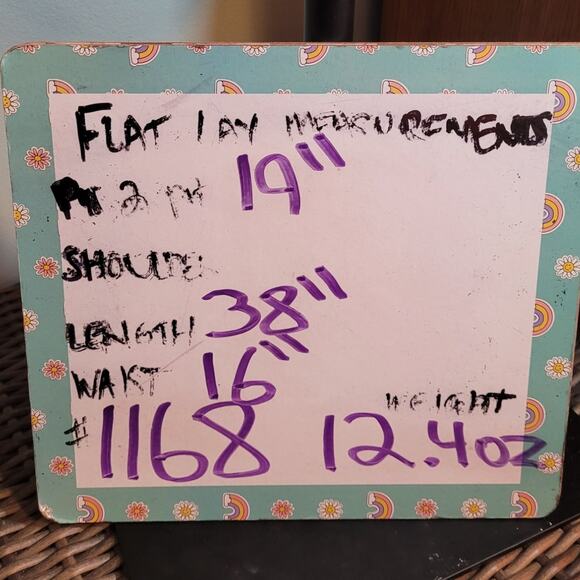 FLAT LAY MEASUREMENTS
Pt 2 pt 19"
SHOULDER
LENGTH 38"
WAIST 16"
WEIGHT
#1168 12.4oz